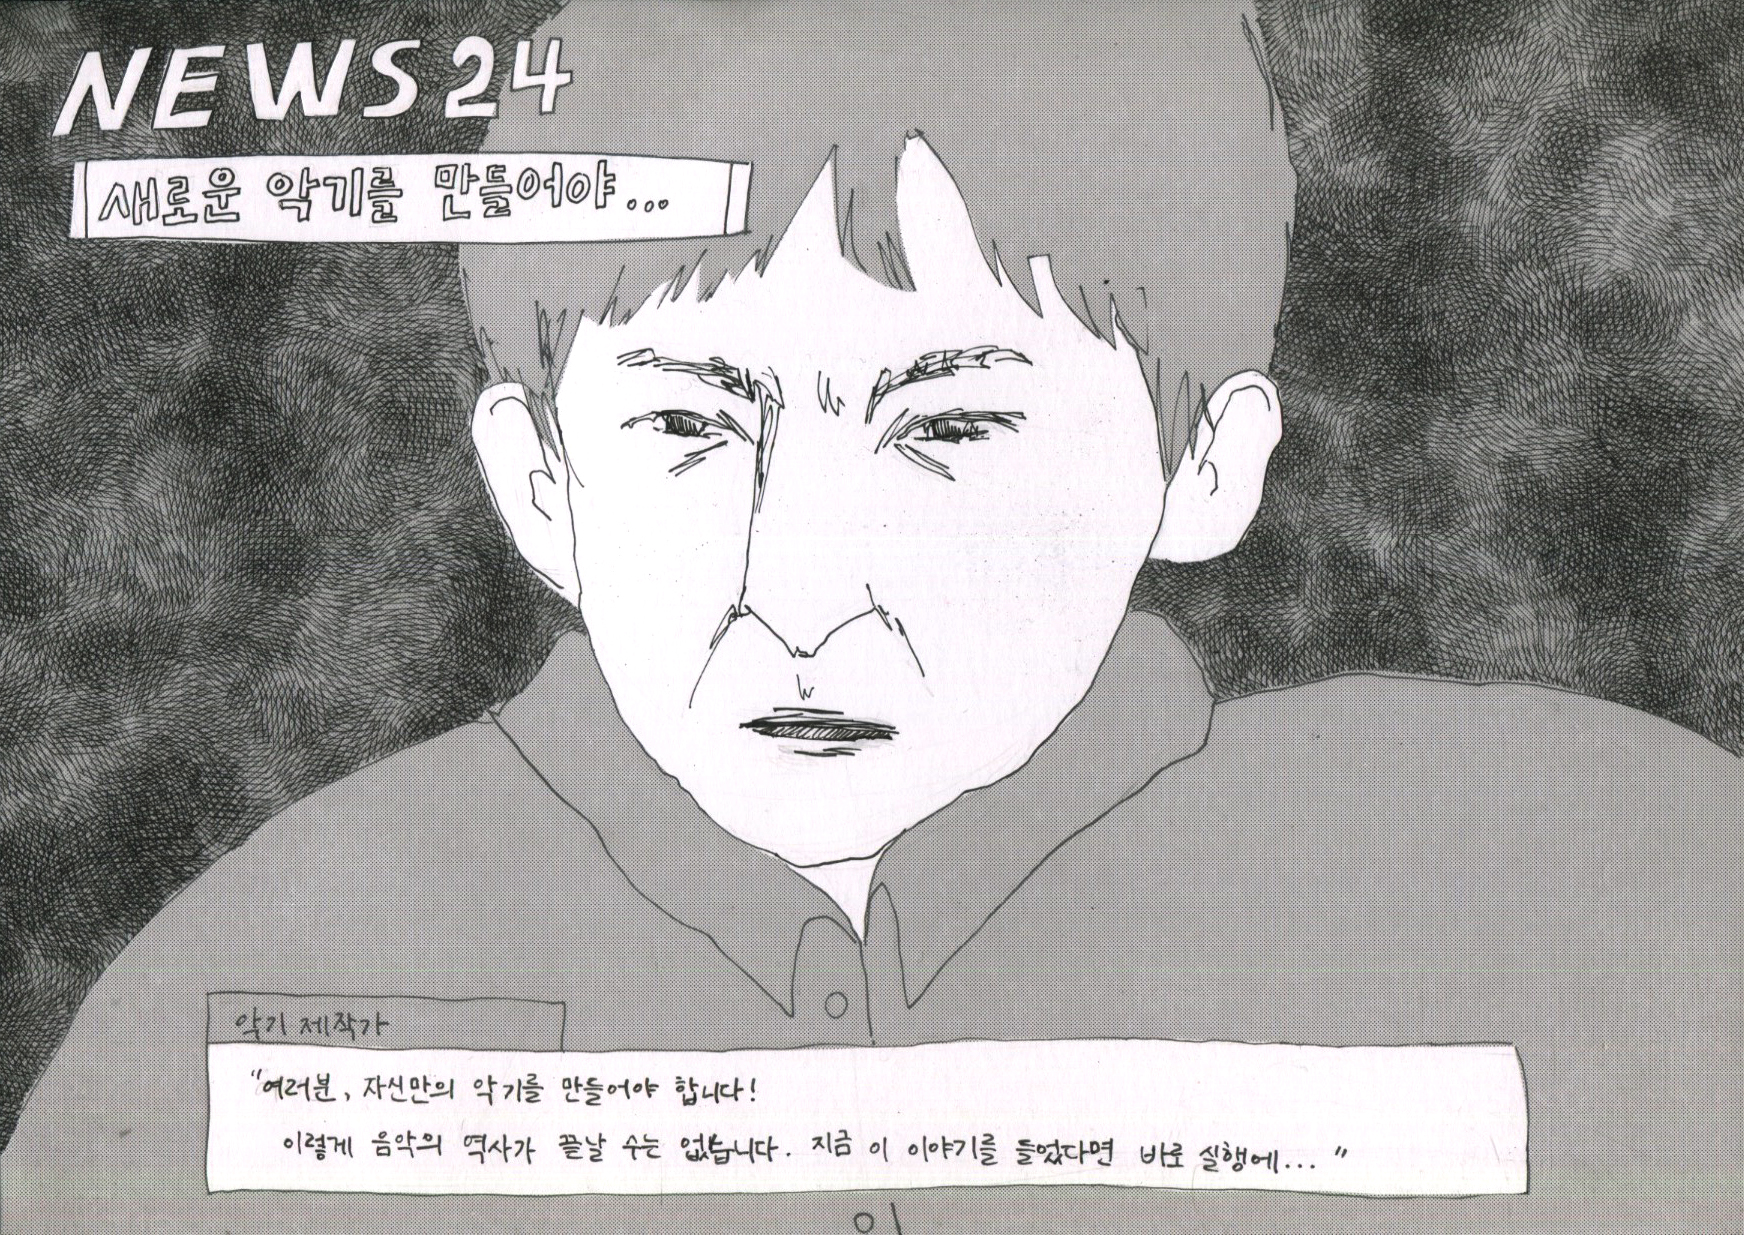 NEWS24
새로운 악기를 만들어야...
악기 제작가
"여러분, 자신만의 악기를 만들어야 합니다!
이렇게 음악의 역사가 끝날 수는 없습니다. 지금 이 이야기를 들었다면 바로 실행에... "